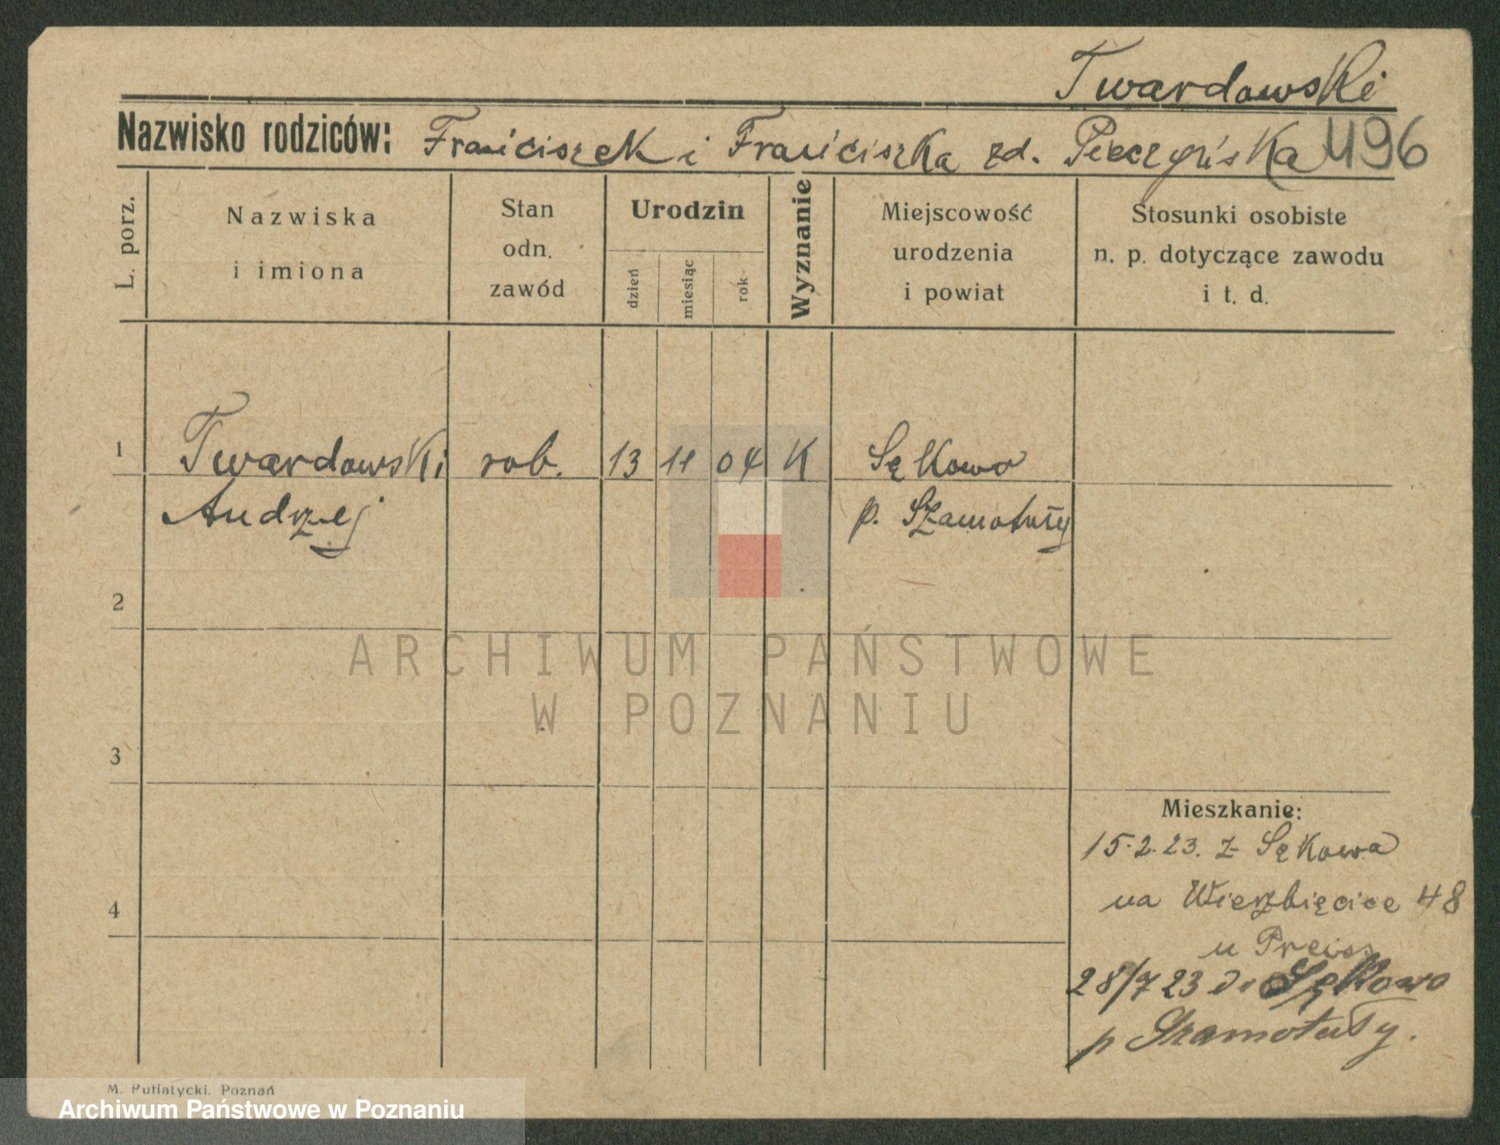 Twardowski
Nazwisko rodziców: Franciszek i Franciszka zd. Pieczyńska 496
L. porz.
Nazwiska
i imiona
Stan
odn.
zawód
Urodzin
dzień
miesiąc
rok
Wyznanie
Miejscowość
urodzenia
i powiat
Stosunki osobiste
n. p. dotyczące zawodu
i t. d.
1 Twardowski rob. 13 11 04 K Sękowo
Andrzej p. Szamotuły
2
3
4
Mieszkanie:
15.2.23. z Sękowa
na Wierzbięcice 48
u Preiss
28/7 23 do Sękowo
p Szamotuły.
M. Putiatycki, Poznań
ARCHIWUM PAŃSTWOWE
W POZNANIU
Archiwum Państwowe w Poznaniu